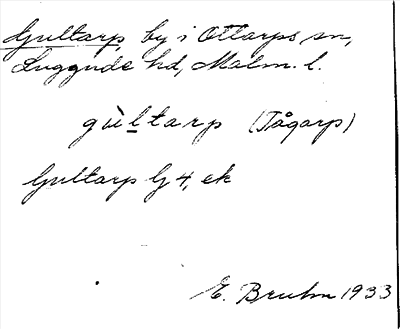 Gultarp, by i Ottarps sn,
Luggude hd, Malm. l.
gùltarp (Tågarp)
Gultarp G 4, ek
E. Bruhn 1933